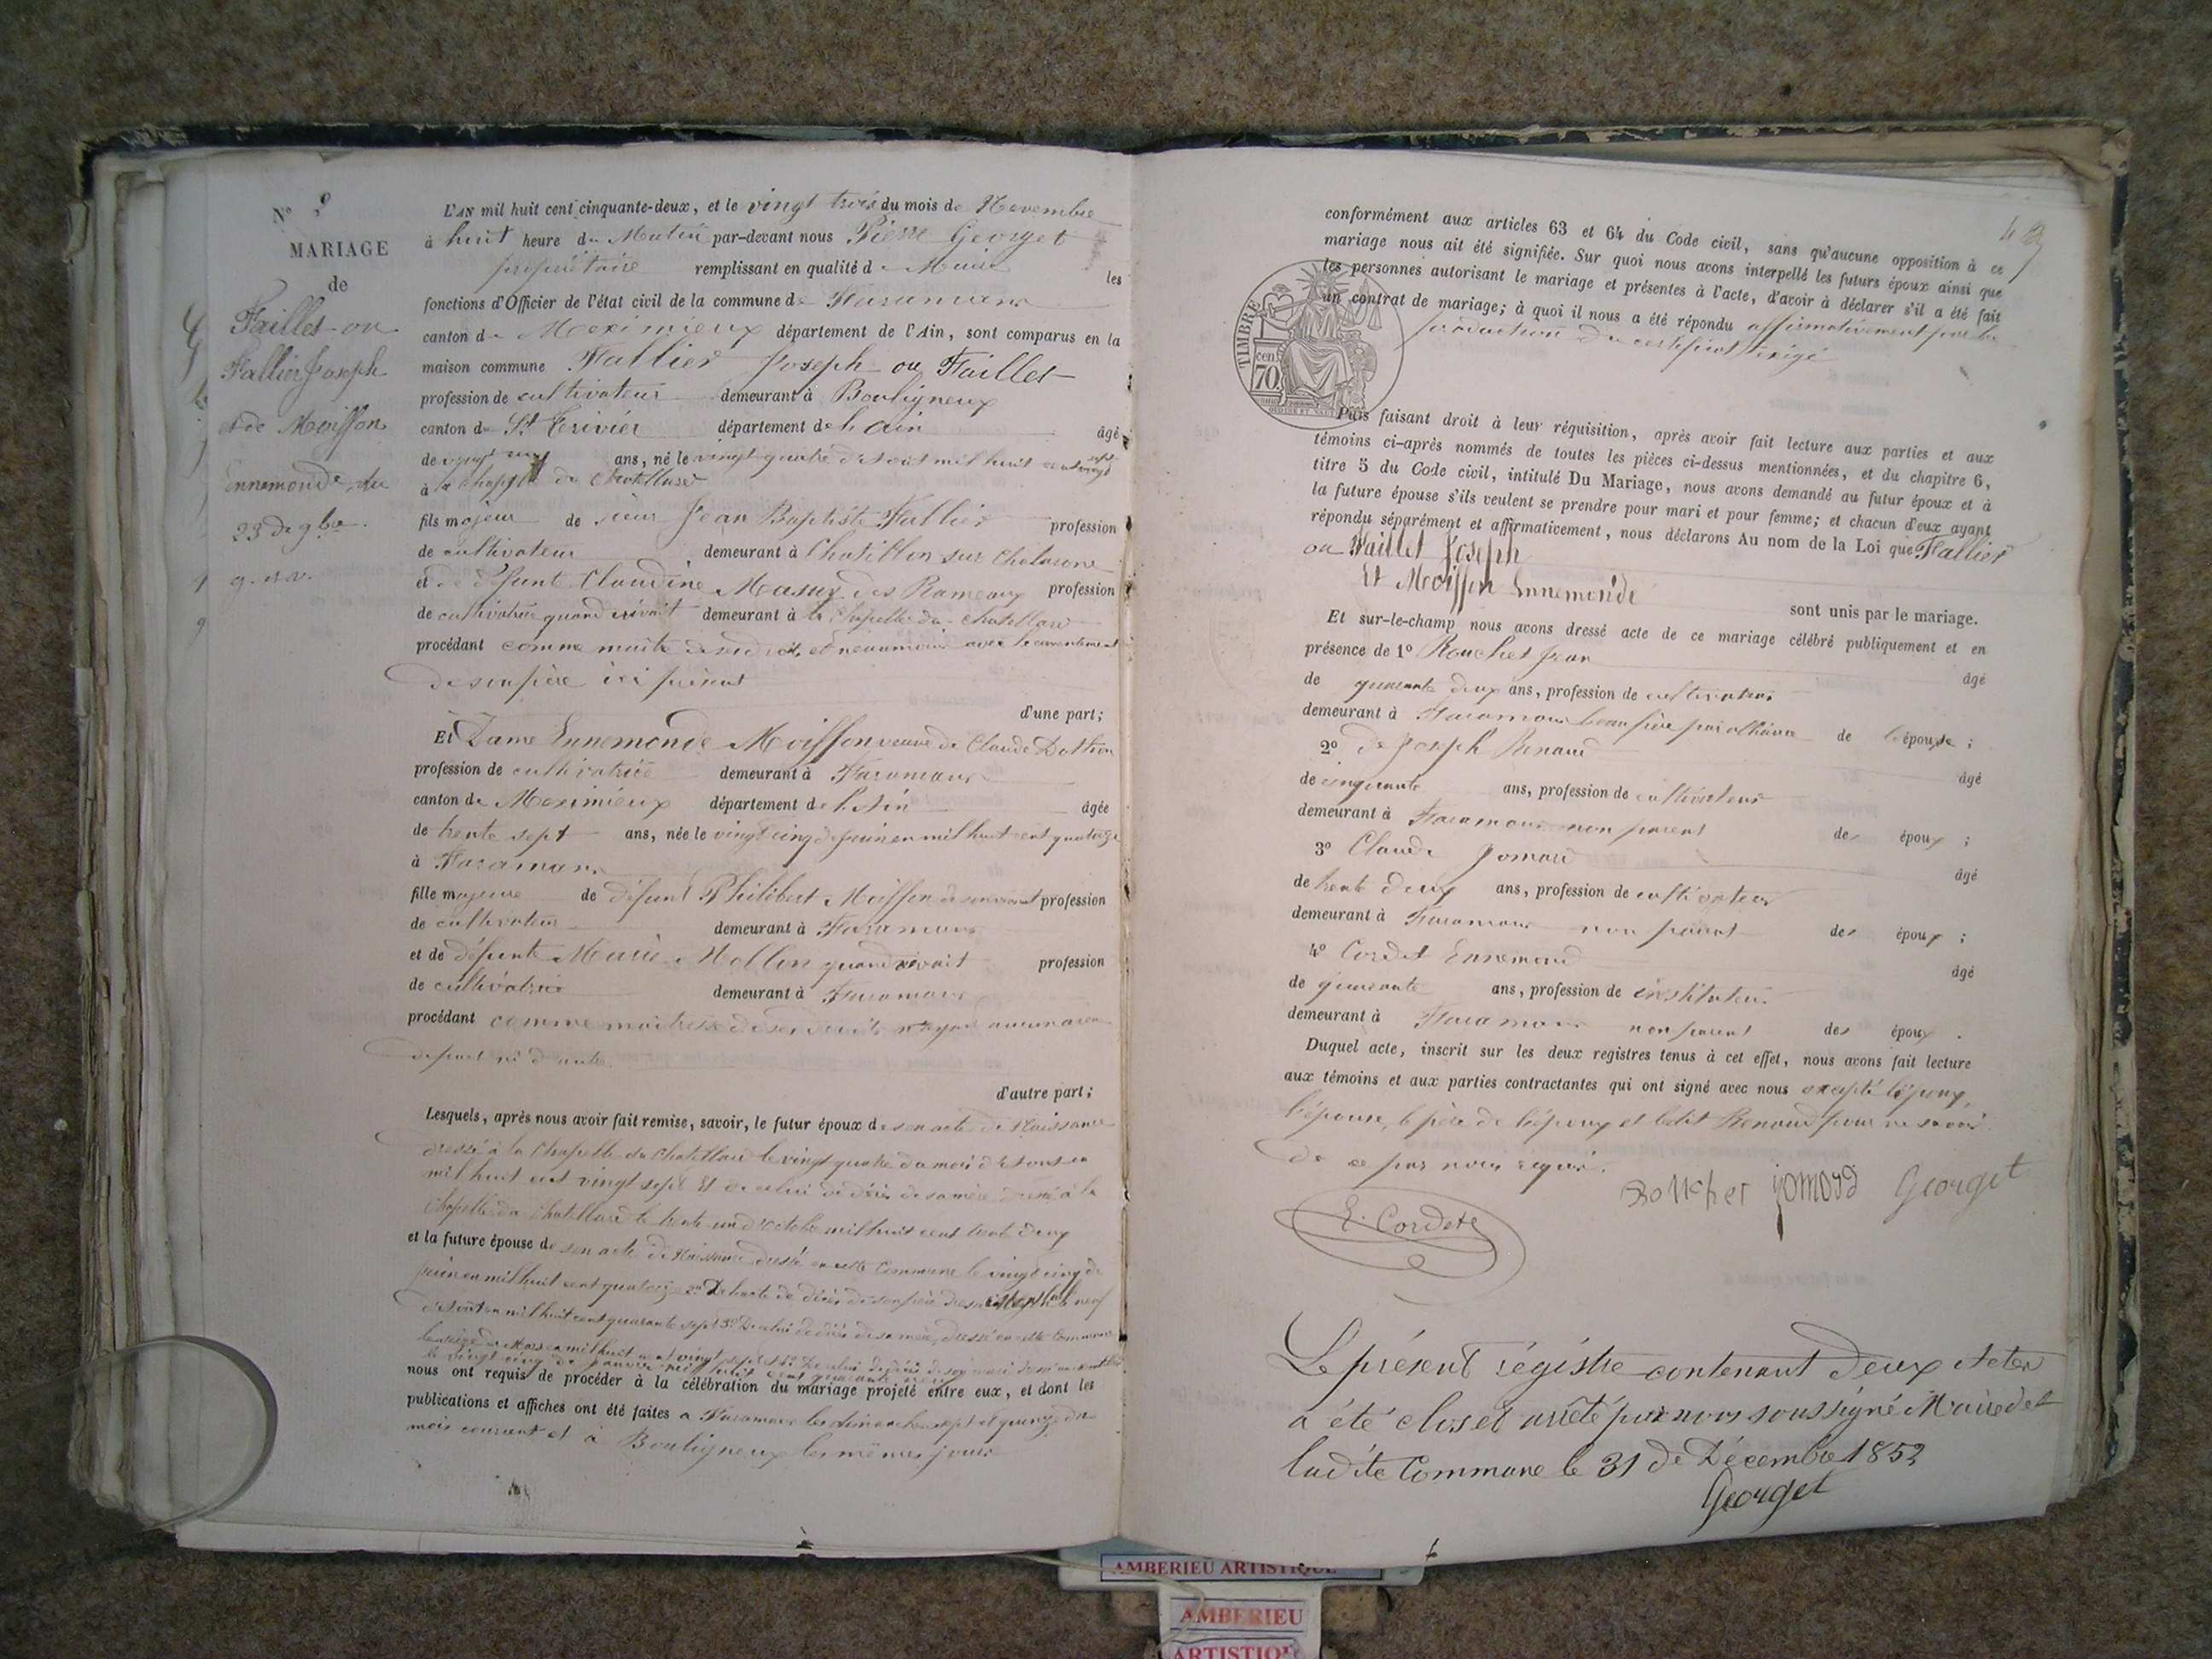 N° 9
MARIAGE
de
Faillet ou
Fallier Joseph
et de Moiffon
Ennemonde, du
23 de 9bre.
L'AN mil huit cent cinquante-deux, et le vingt trois du mois de Novembre
à huit heure du Matin par-devant nous Pierre Georget
propriétaire remplissant en qualité de Maire les
fonctions d'Officier de l'état civil de la commune de Faramans
canton de Meximieux département de l'Ain, sont comparus en la
maison commune Fallier Joseph ou Faillet
profession de cultivateur demeurant à Bouligneux
canton de St Trivier département de l'ain âgé
de vingt ans, né le vingt quatre d'Août mil huit cent vingt sept
à la Chapelle du Chatellard
fils majeur de sieur Jean Baptiste Fallier profession
de cultivateur demeurant à Chatillon sur Chalaronne
et de défunte Claudine Masuy des Rameaux profession
de cultivatrice quand vivait demeurant à la Chapelle du Chatellard
procédant comme maître de ses droits et néanmoins avec le consentement
de son père ici présent
d'une part;
Et Dame Ennemonde Moiffon veuve de Claude
profession de cultivatrice demeurant à Faramans
canton de Meximieux département de l'Ain âgée
de trente sept ans, née le vingt cinq de juin en mil huit cent quatorze
à Faramans
fille majeure de défunt Philibert Moiffon de son vivant profession
de cultivateur demeurant à Faramans
et de défunte Marie Mollon quand vivait profession
de cultivatrice demeurant à Faramans
procédant comme maîtresse de ses droits n'ayant aucun
de part ni d'autre.
d'autre part;
Lesquels, après nous avoir fait remise, savoir, le futur époux de son acte de Naissance
dressé à la Chapelle du Chatellard le vingt quatre du mois d'Août en
mil huit cent vingt sept Et de celui de décès de sa mère dressé à la
Chapelle du Chatellard le trente un d'octobre mil huit cent trente deux
et la future épouse de son acte de Naissance dressé en cette Commune le vingt cinq de
juin en mil huit cent quatorze 2° De l'acte de décès de son père le neuf
d'Août en mil huit cent quarante sept 3° De celui de décès de sa mère, dressé en cette Commune
le de Mars en mil huit cent vingt sept 4° De celui de décès de son mari
le vingt cinq de janvier mil huit cent quarante
nous ont requis de procéder à la célébration du mariage projeté entre eux, et dont les
publications et affiches ont été faites à Faramans les dimanches sept et quinze du
mois courant et à Bouligneux les mêmes jours
conformément aux articles 63 et 64 du Code civil, sans qu'aucune opposition à ce
mariage nous ait été signifiée. Sur quoi nous avons interpellé les futurs époux ainsi que
les personnes autorisant le mariage et présentes à l'acte, d'avoir à déclarer s'il a été fait
un contrat de mariage; à quoi il nous a été répondu affirmativement par la
production du certificat exigé
TIMBRE
cen.
70
Puis faisant droit à leur réquisition, après avoir fait lecture aux parties et aux
témoins ci-après nommés de toutes les pièces ci-dessus mentionnées, et du chapitre 6,
titre 5 du Code civil, intitulé Du Mariage, nous avons demandé au futur époux et à
la future épouse s'ils veulent se prendre pour mari et pour femme; et chacun d'eux ayant
répondu séparément et affirmativement, nous déclarons Au nom de la Loi que Fallier
ou Faillet Joseph
Et Moiffon Ennemonde
sont unis par le mariage.
Et sur-le-champ nous avons dressé acte de ce mariage célébré publiquement et en
présence de 1° Rouchet Jean âgé
de quarante deux ans, profession de cultivateur
demeurant à Faramans beau frère par alliance de l'épouse ;
2° de Joseph Renaud âgé
de cinquante ans, profession de cultivateur
demeurant à Faramans non parent des époux ;
3° Claude Jomard âgé
de trente deux ans, profession de cultivateur
demeurant à Faramans non parent des époux ;
4° Cordet Ennemond âgé
de quarante ans, profession de instituteur
demeurant à Faramans non parent des époux .
Duquel acte, inscrit sur les deux registres tenus à cet effet, nous avons fait lecture
aux témoins et aux parties contractantes qui ont signé avec nous excepté l'époux,
l'épouse, le père de l'époux et ledit Renaud pour ne savoir
de ce par nous requis.
Roucher jomard Georget
E. Cordet
Le présent régistre contenant deux Actes
a été clos et arrêté par nous soussigné Maire de
ladite Commune le 31 de Décembre 1852
Georget
AMBERIEU ARTISTIQUE
AMBERIEU
ARTISTIQUE